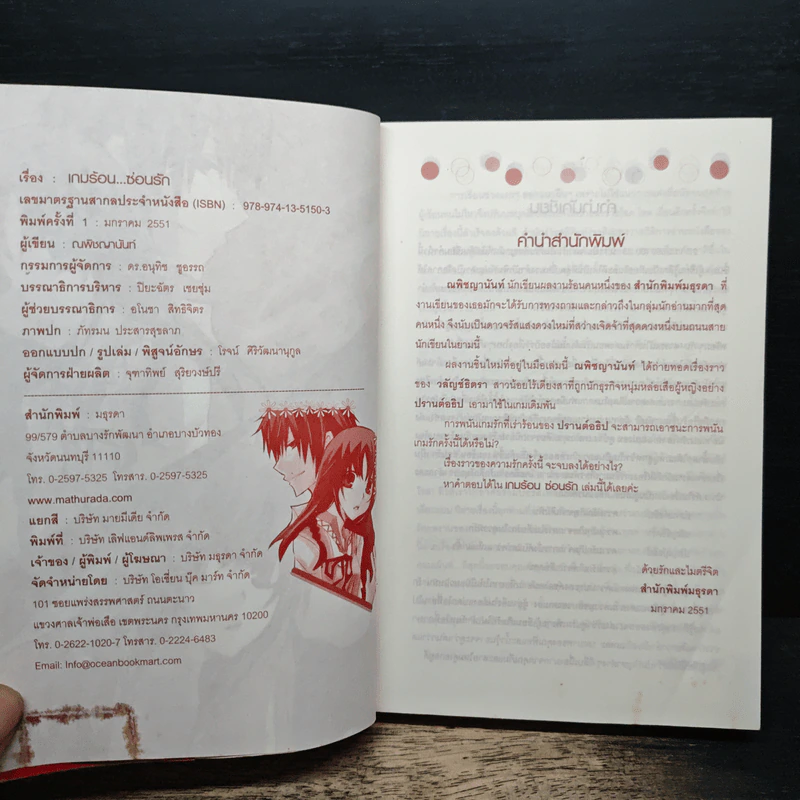 เรื่อง : เกมร้อน...ซ่อนรัก
เลขมาตรฐานสากลประจำหนังสือ (ISBN) : 978-974-13-5150-3
พิมพ์ครั้งที่ 1 : มกราคม 2551
ผู้เขียน : ณพิชญานันท์
กรรมการผู้จัดการ : ดร.อนุทิช ชูอรรถ
บรรณาธิการบริหาร : ปิยะฉัตร เชยชุ่ม
ผู้ช่วยบรรณาธิการ : อโนชา สิทธิจิตร
ภาพปก : ภัทรมน ประสารสุขลาภ
ออกแบบปก / รูปเล่ม / พิสูจน์อักษร : โรจน์ ศิริวัฒนานุกูล
ผู้จัดการฝ่ายผลิต : จุฑาทิพย์ สุริยวงษ์ปรี
สำนักพิมพ์ : มธุรดา
99/579 ตำบลบางรักพัฒนา อำเภอบางบัวทอง
จังหวัดนนทบุรี 11110
โทร. 0-2597-5325 โทรสาร. 0-2597-5325
www.mathurada.com
แยกสี : บริษัท มายมีเดีย จำกัด
พิมพ์ที่ : บริษัท เลิฟแอนด์ลิพเพรส จำกัด
เจ้าของ / ผู้พิมพ์ / ผู้โฆษณา : บริษัท มธุรดา จำกัด
จัดจำหน่ายโดย : บริษัท โอเชี่ยน บุ๊ค มาร์ท จำกัด
101 ซอยแพร่งสรรพศาสตร์ ถนนตะนาว
แขวงศาลเจ้าพ่อเสือ เขตพระนคร กรุงเทพมหานคร 10200
โทร. 0-2622-1020-7 โทรสาร. 0-2224-6483
Email: Info@oceanbookmart.com
คำนำสำนักพิมพ์
ณพิชญานันท์ นักเขียนผลงานร้อนคนหนึ่งของ สำนักพิมพ์มธุรดา ที่
งานเขียนของเธอมักจะได้รับการทวงถามและกล่าวถึงในกลุ่มนักอ่านมากที่สุด
คนหนึ่ง จึงนับเป็นดาวจรัสแสงดวงใหม่ที่สว่างเจิดจ้าที่สุดดวงหนึ่งบนถนนสาย
นักเขียนในยามนี้
ผลงานชิ้นใหม่ที่อยู่ในมือเล่มนี้ ณพิชญานันท์ ได้ถ่ายทอดเรื่องราว
ของ วลัญช์ธิตรา สาวน้อยไร้เดียงสาที่ถูกนักธุรกิจหนุ่มหล่อเสือผู้หญิงอย่าง
ปรานต์อธิป เอามาใช้ในเกมเดิมพัน
การพนันเกมรักที่เร่าร้อนของ ปรานต์อธิป จะสามารถเอาชนะการพนัน
เกมรักครั้งนี้ได้หรือไม่?
เรื่องราวของความรักครั้งนี้ จะจบลงได้อย่างไร?
หาคำตอบได้ใน เกมร้อน ซ่อนรัก เล่มนี้ได้เลยค่ะ
ด้วยรักและไมตรีจิต
สำนักพิมพ์มธุรดา
มกราคม 2551